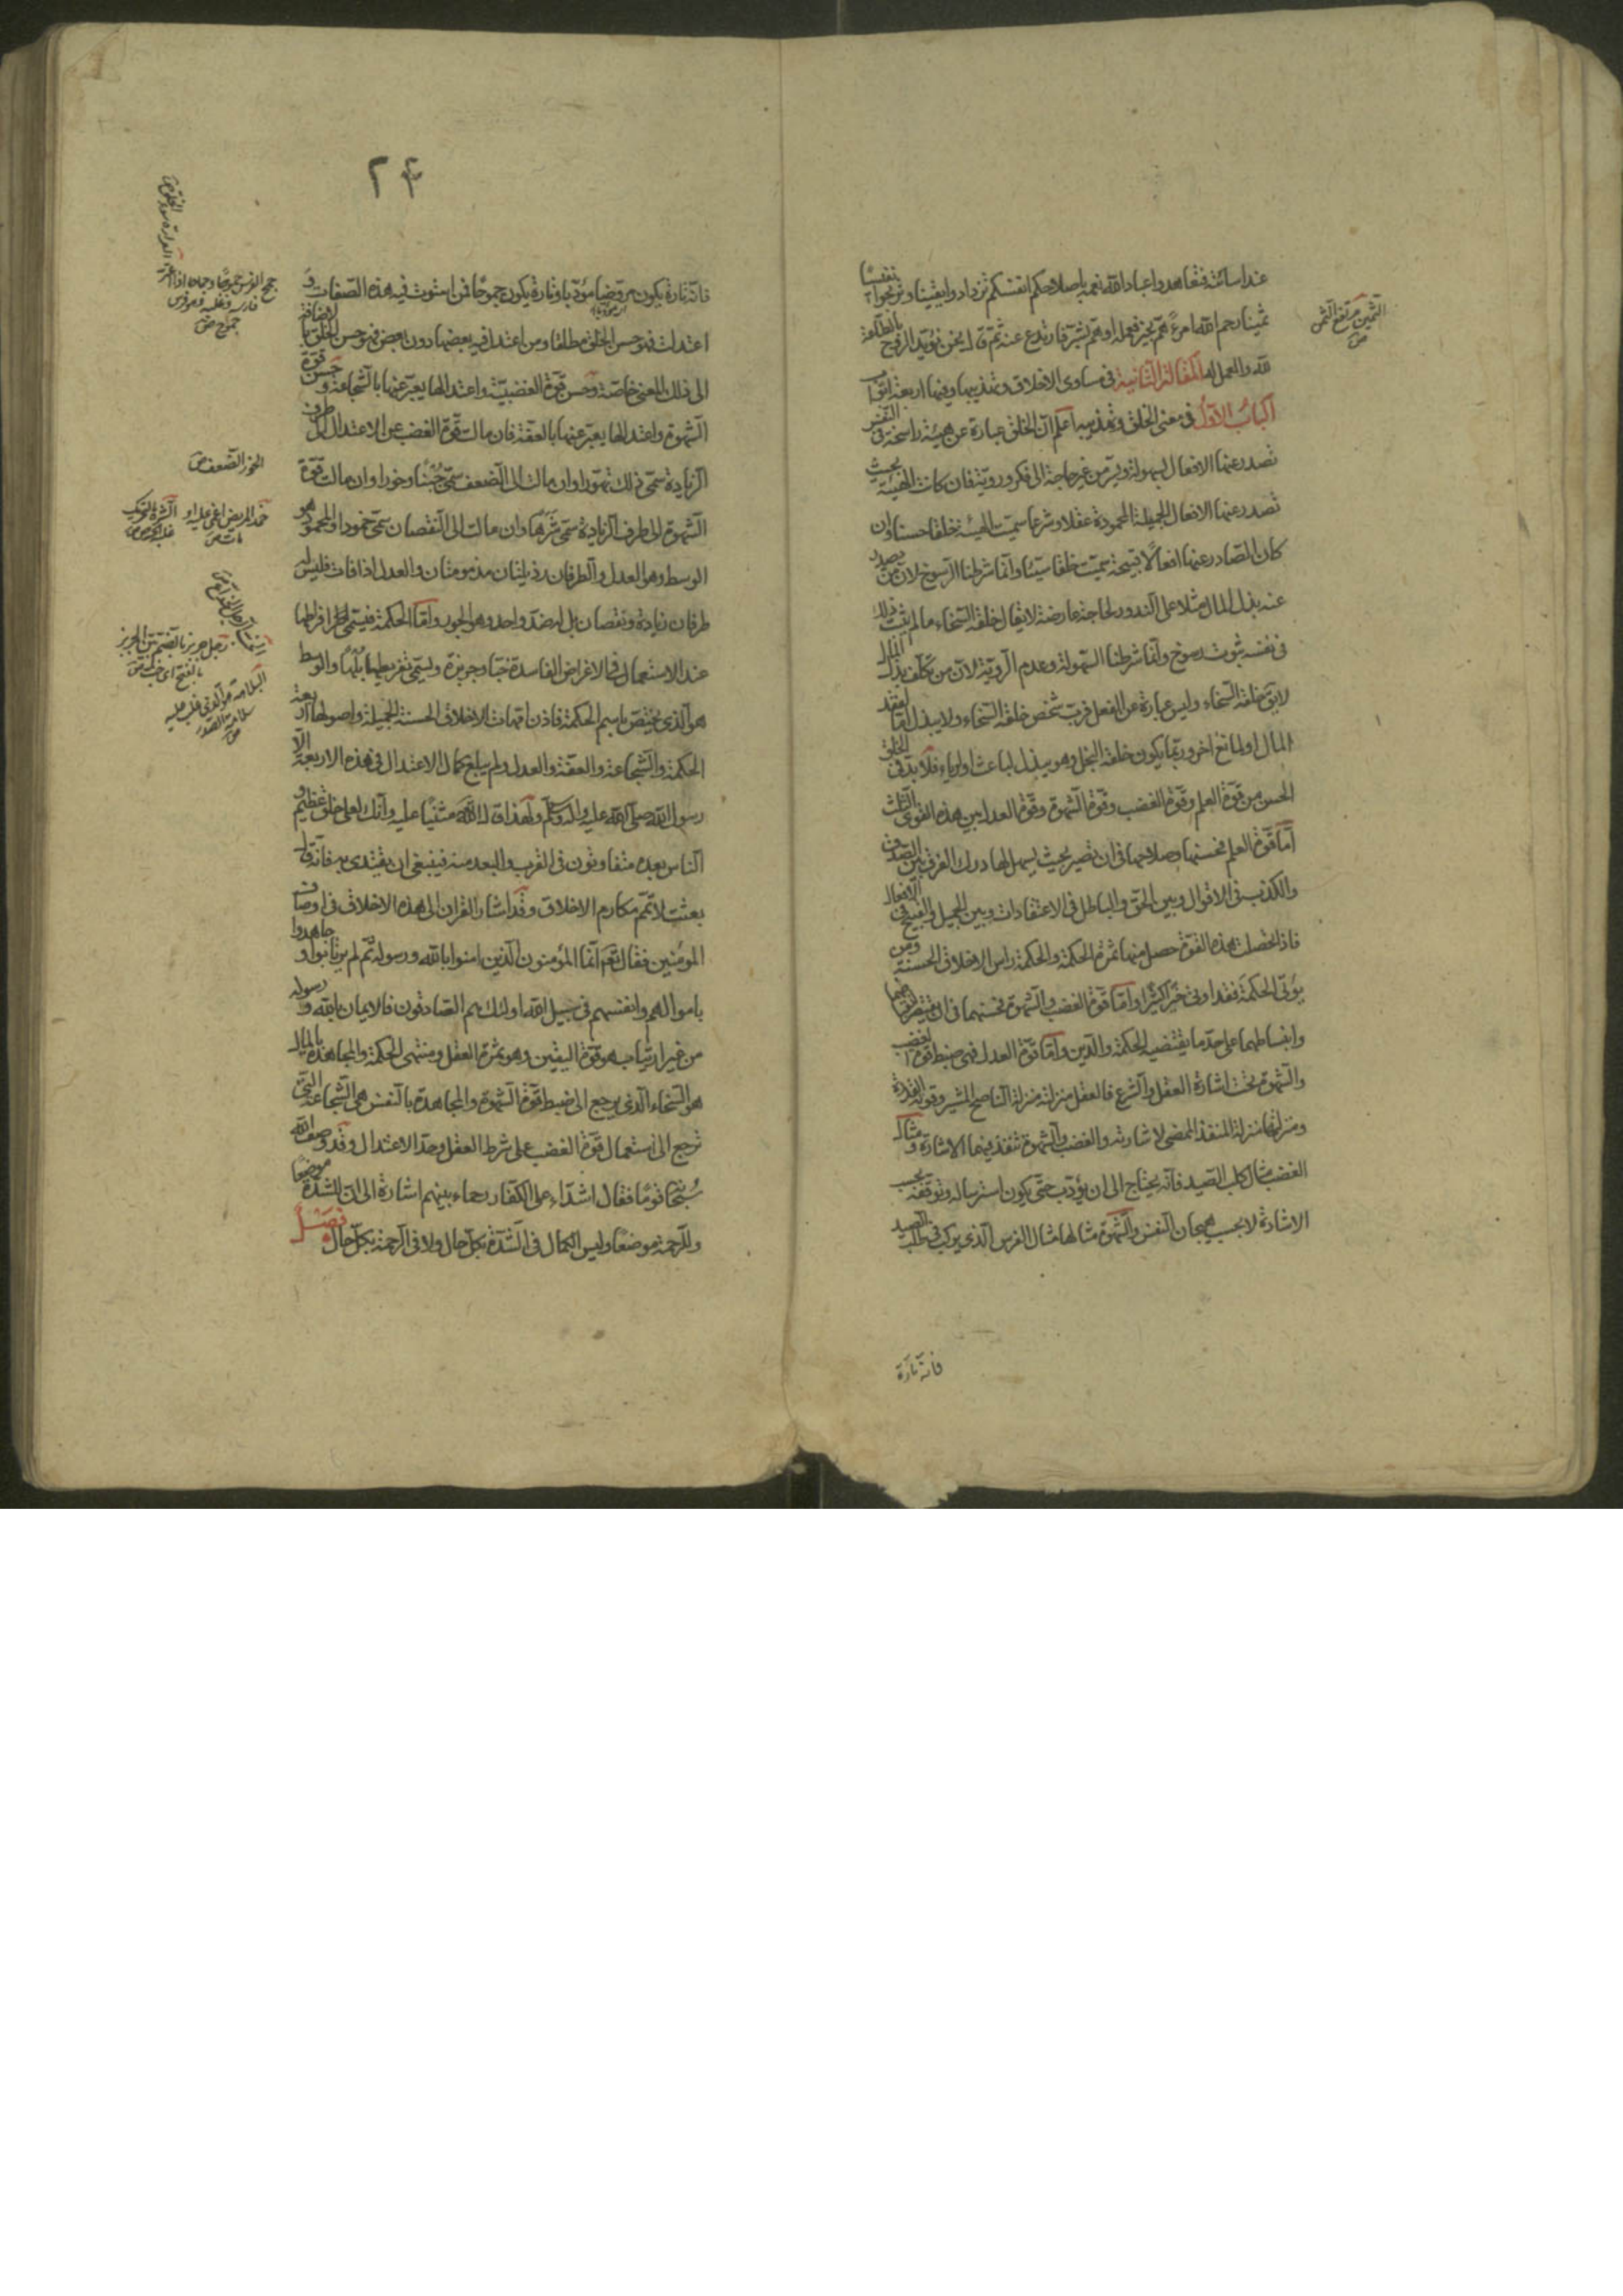 عند اسائته فتعاهدوا عباد الله نعمه باصلاحكم انفسكم تزدادوا يقينا وتربحوا نفيسا
ثمينا رحم الله امرءً همّ بخير فعمله او همّ بشرّ فارتدع عنه ثم قال نحن نؤيد الروح بالطاعة
لله والعمل له المقالة الثانية في مساوى الاخلاق وتهذيبها وفيها اربعة ابواب
الباب الاوّل في معنى الخلق وتهذيبه اعلم انّ الخلق عبارة عن هيئة راسخة في النفس
تصدر عنها الافعال بسهولة ويسر من غير حاجة الى فكر ورويّة فان كانت الهيئة بحيث
تصدر عنها الافعال الجميلة المحمودة عقلا وشرعا سميّت الهيئة خلقا حسنا وان
كان الصّادر عنها افعالًا قبيحة سميّت خلقا سيّئا وانّما شرطنا الرسوخ لانّ من يصدر
عنه بذل المال مثلا على الندور لحاجة عارضة لا يقال خلقه السّخاء ما لم يثبت ذلك
في نفسه ثبوت رسوخ وانّما شرطنا السّهولة وعدم الرويّة لانّ من تكلّف بذل المال
لا يقال خلقه السّخاء وليس عبارة عن الفعل فربّ شخص خلقه السّخاء ولا يبذل امّا لفقد
المال او لمانع اخر وربّما يكون خلقه البخل وهو يبذل لباعث او لرياء فلا بدّ في الخلق
الحسن من قوّة العلم وقوّة الغضب وقوّة الشهوة وقوّة العدل بين هذه القوى الثلث
امّا قوّة العلم فحسنها وصلاحها في ان تصير بحيث يسهل لها درك الفرق بين الصدق
والكذب في الاقوال وبين الحقّ والباطل في الاعتقادات وبين الجميل والقبيح في الافعال
فاذا حصلت هذه القوّة حصل منها ثمرة الحكمة والحكمة راس الاخلاق الحسنة ومن
يؤتى الحكمة فقد اوتى خيرا كثيرا وامّا قوّة الغضب والشهوة فحسنهما في ان يقتصر انقباضهما
وانبساطهما على حدّ ما يقتضيه الحكمة والدّين وامّا قوّة العدل فهى ضبط قوة الغضب
والشهوة تحت اشارة العقل والشرع فالعقل منزلته منزلة الناصح المشير وقوّة القدرة
ومنزلتها منزلة المنفذ الممضى لاشارته والغضب والشهوة تنفذ فيهما الاشارة ومثال
الغضب مثال كلب الصّيد فانّه يحتاج الى ان يؤدّب حتى يكون استرساله وتوقفه بحسب
الاشارة لا بحسب هيجان النفس والشهوة مثالها مثال الفرس الّذى يركب في طلب الصيد
فانّه تارة
الثمين مرتفع الثمن
ص
٢٤
فانّه تارة يكون مروّضا مؤدّبا وتارة يكون جموحًا فمن استوت فيه هذه الصّفات و
اعتدلت فهو حسن الخلق مطلقا ومن اعتدل فيه بعضها دون بعض فهو حسن الخلق بالاضافة
الى ذلك المعنى خاصّة وحسن قوّة الغضبيّة واعتدالها يعبّر عنها بالشّجاعة وحسن قوّة
الشهوة واعتدالها يعبّر عنها بالعفّة فان مالت قوّة الغضب عن الاعتدال الى طرف
الزيادة سمّى ذلك تهوّرا وان مالت الى الضّعف سمّى جُبنا وخورا وان مالت قوّة
الشهوة الى طرف الزيادة سمّى شرَهًا وان مالت الى النّقصان سمّى خمودا والمحمود هو
الوسط وهو العدل والطرفان رذيلتان مذمومتان والعدل اذا فات فليس له
طرفان زيادة ونقصان بل له ضدّ واحد وهو الجور وامّا الحكمة فيسمّى افراطها
عند الاستعمال في الاغراض الفاسدة خبّا وجربزة ويسمّى تفريطها بُلْهًا والوسط
هو الّذى يختصّ باسم الحكمة فاذن امّهات الاخلاق الحسنة الجميلة واصولها اربعة
الحكمة والشّجاعة والعفّة والعدل ولم يبلغ كمال الاعتدال في هذه الاربعة الّا
رسول الله صلّى الله عليه واله وسلّم ولهذا قال الله مثنيًا عليه وانّك لعلى خلق عظيم و
الناس بعده متفاوتون في القرب والبعد منه فينبغى ان يقتدى به فانّه قال
بعثت لاتمّم مكارم الاخلاق وقد اشار القران الى هذه الاخلاق في اوصاف
المؤمنين فقال تعم انّما المؤمنون الّذين امنوا بالله ورسوله ثم لم يرتابوا وجاهدوا
باموالهم وانفسهم في سبيل الله اولئك هم الصّادقون فالايمان بالله ورسوله
من غير ارتياب هو قوّة اليقين وهو ثمرة العقل ومنتهى الحكمة والمجاهدة بالمال
هو السّخاء الّذى يرجع الى ضبط قوّة الشهوة والمجاهدة بالنفس هى الشّجاعة الّتى
ترجع الى استعمال قوّة الغضب على شرط العقل وحدّ الاعتدال وقد وصف الله
سُبْحَا قومًا فقال اشدّاء على الكفّار رحماء بينهم اشارة الى انّ للشدّة موضعًا
وللرّحمة موضعًا وليس الكمال في الشّدّة بكلّ حال ولا في الرّحمة بكلّ حال فصل
جمح الفرس جموحا وجماحا اذا
فارسه وغلبه فهو فرس
جموح ص
الخور الضّعف ص
خمد المريض اغمى عليه او
مات ص
الشره بالتحريك
غلبة الحرص ص
رجل جربز بالضمّ بيّن الجربزة
بالفتح اى خبّ ص
البلاهة هو الّذى غلب عليه
سلامة الصّدر
ص